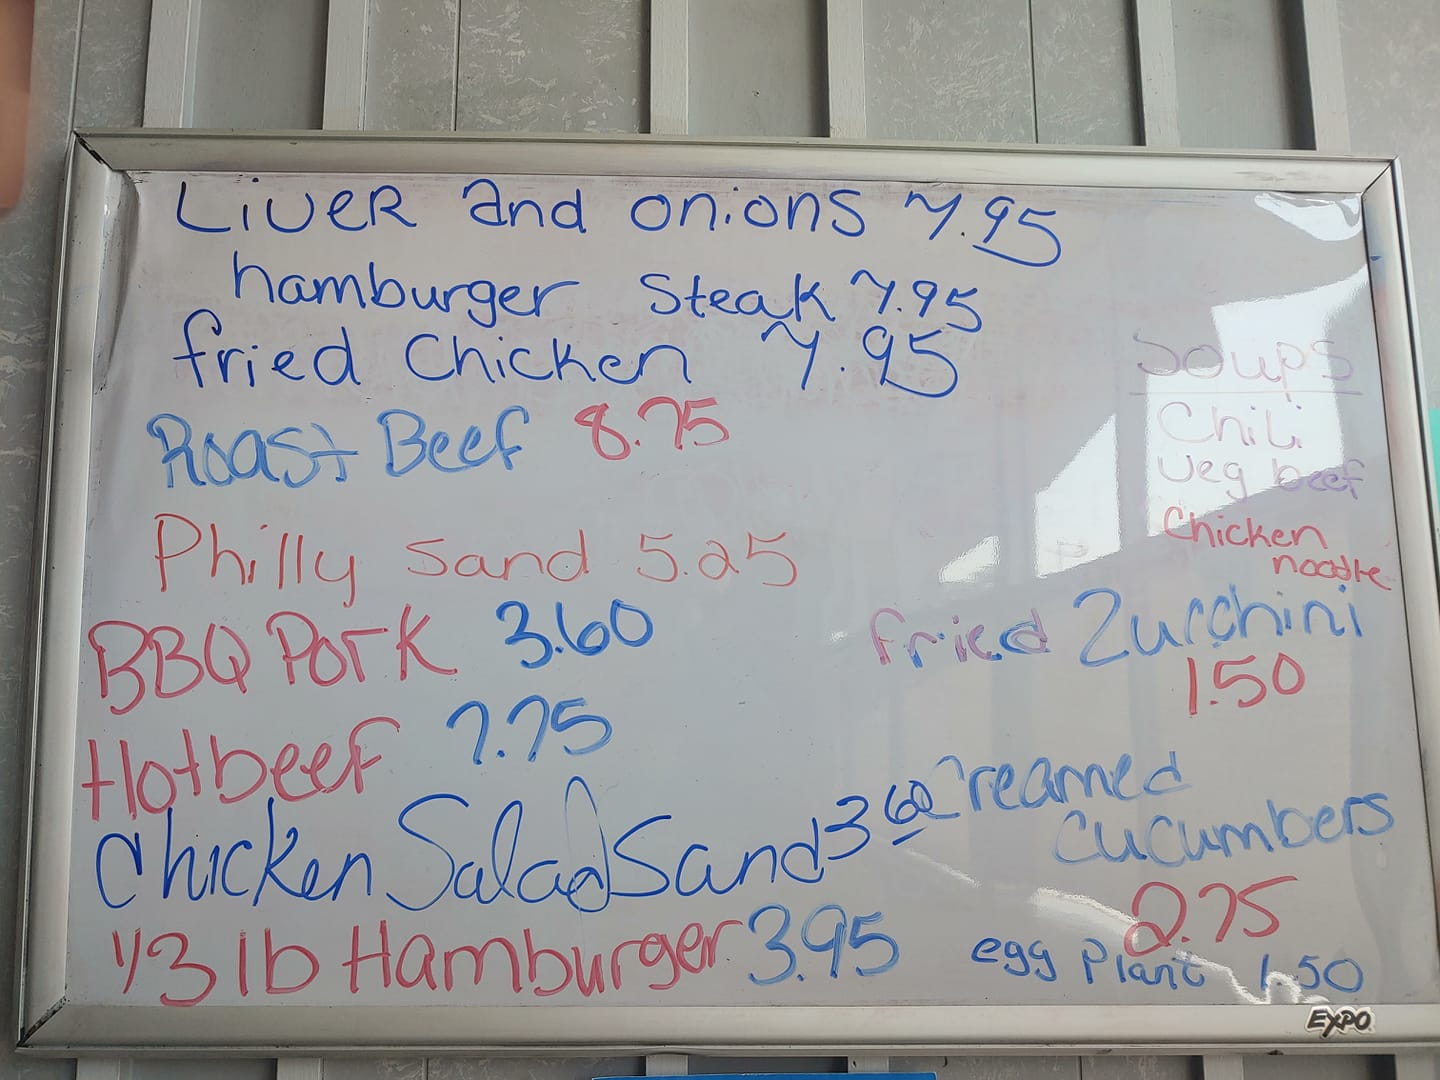 LiVER and onions 7.95
hamburger Steak 7.95
fried Chicken 7.95
Roast Beef 8.75
Philly Sand 5.25
BBQ Pork 3.60
Hotbeef 7.75
Chicken Salad Sand 3.60
1/3 lb Hamburger 3.95
Soups
Chili
Veg beef
Chicken
noodle
fried Zucchini
1.50
Creamed
cucumbers
2.75
egg plant 1.50
EXPO